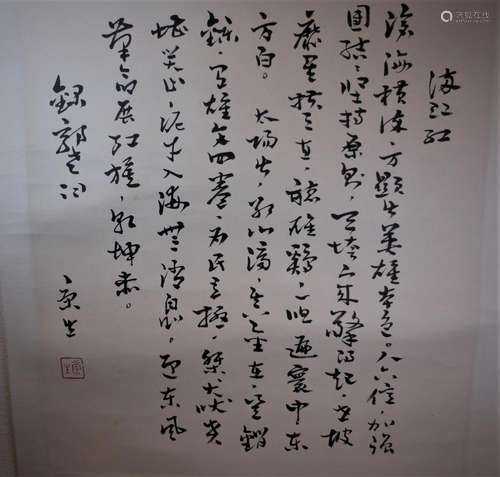 满江红
沧海横流，方顯出英雄本色。人六億，加強
團結，坚持原则，天垮下来擎得起，世披
靡矣扶之直，聽雄鷄一唱遍寰中东
方白。太陽出，冰山滴，真金在，岂銷
鑠，有雄文四卷，为民立極，桀犬吠尧
堪笑止，泥牛入海無消息。迎东风
革命展红旗，乾坤赤。
錄郭老词